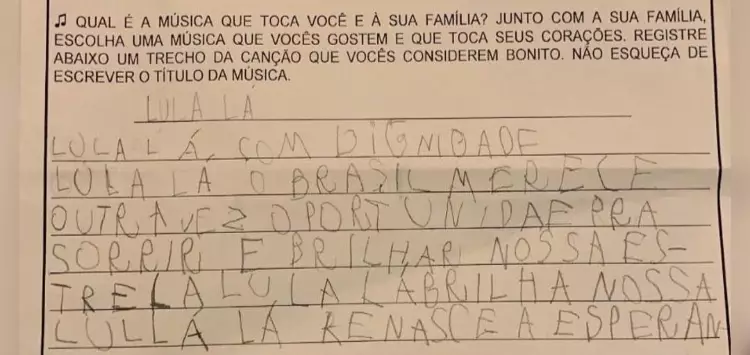 ♫ QUAL É A MÚSICA QUE TOCA VOCÊ E À SUA FAMÍLIA? JUNTO COM A SUA FAMÍLIA,
ESCOLHA UMA MÚSICA QUE VOCÊS GOSTEM E QUE TOCA SEUS CORAÇÕES. REGISTRE
ABAIXO UM TRECHO DA CANÇÃO QUE VOCÊS CONSIDEREM BONITO. NÃO ESQUEÇA DE
ESCREVER O TÍTULO DA MÚSICA.
LULA LÁ
LULA LÁ, COM DIGNIDADE
LULA LÁ O BRASIL MERECE
OUTRA VEZ OPORTUNIDAE PRA
SORRIR E BRILHAR NOSSA ES-
TRELA LULA LÁ BRILHA NOSSA
LULLA LÁ RENASCE A ESPERAN